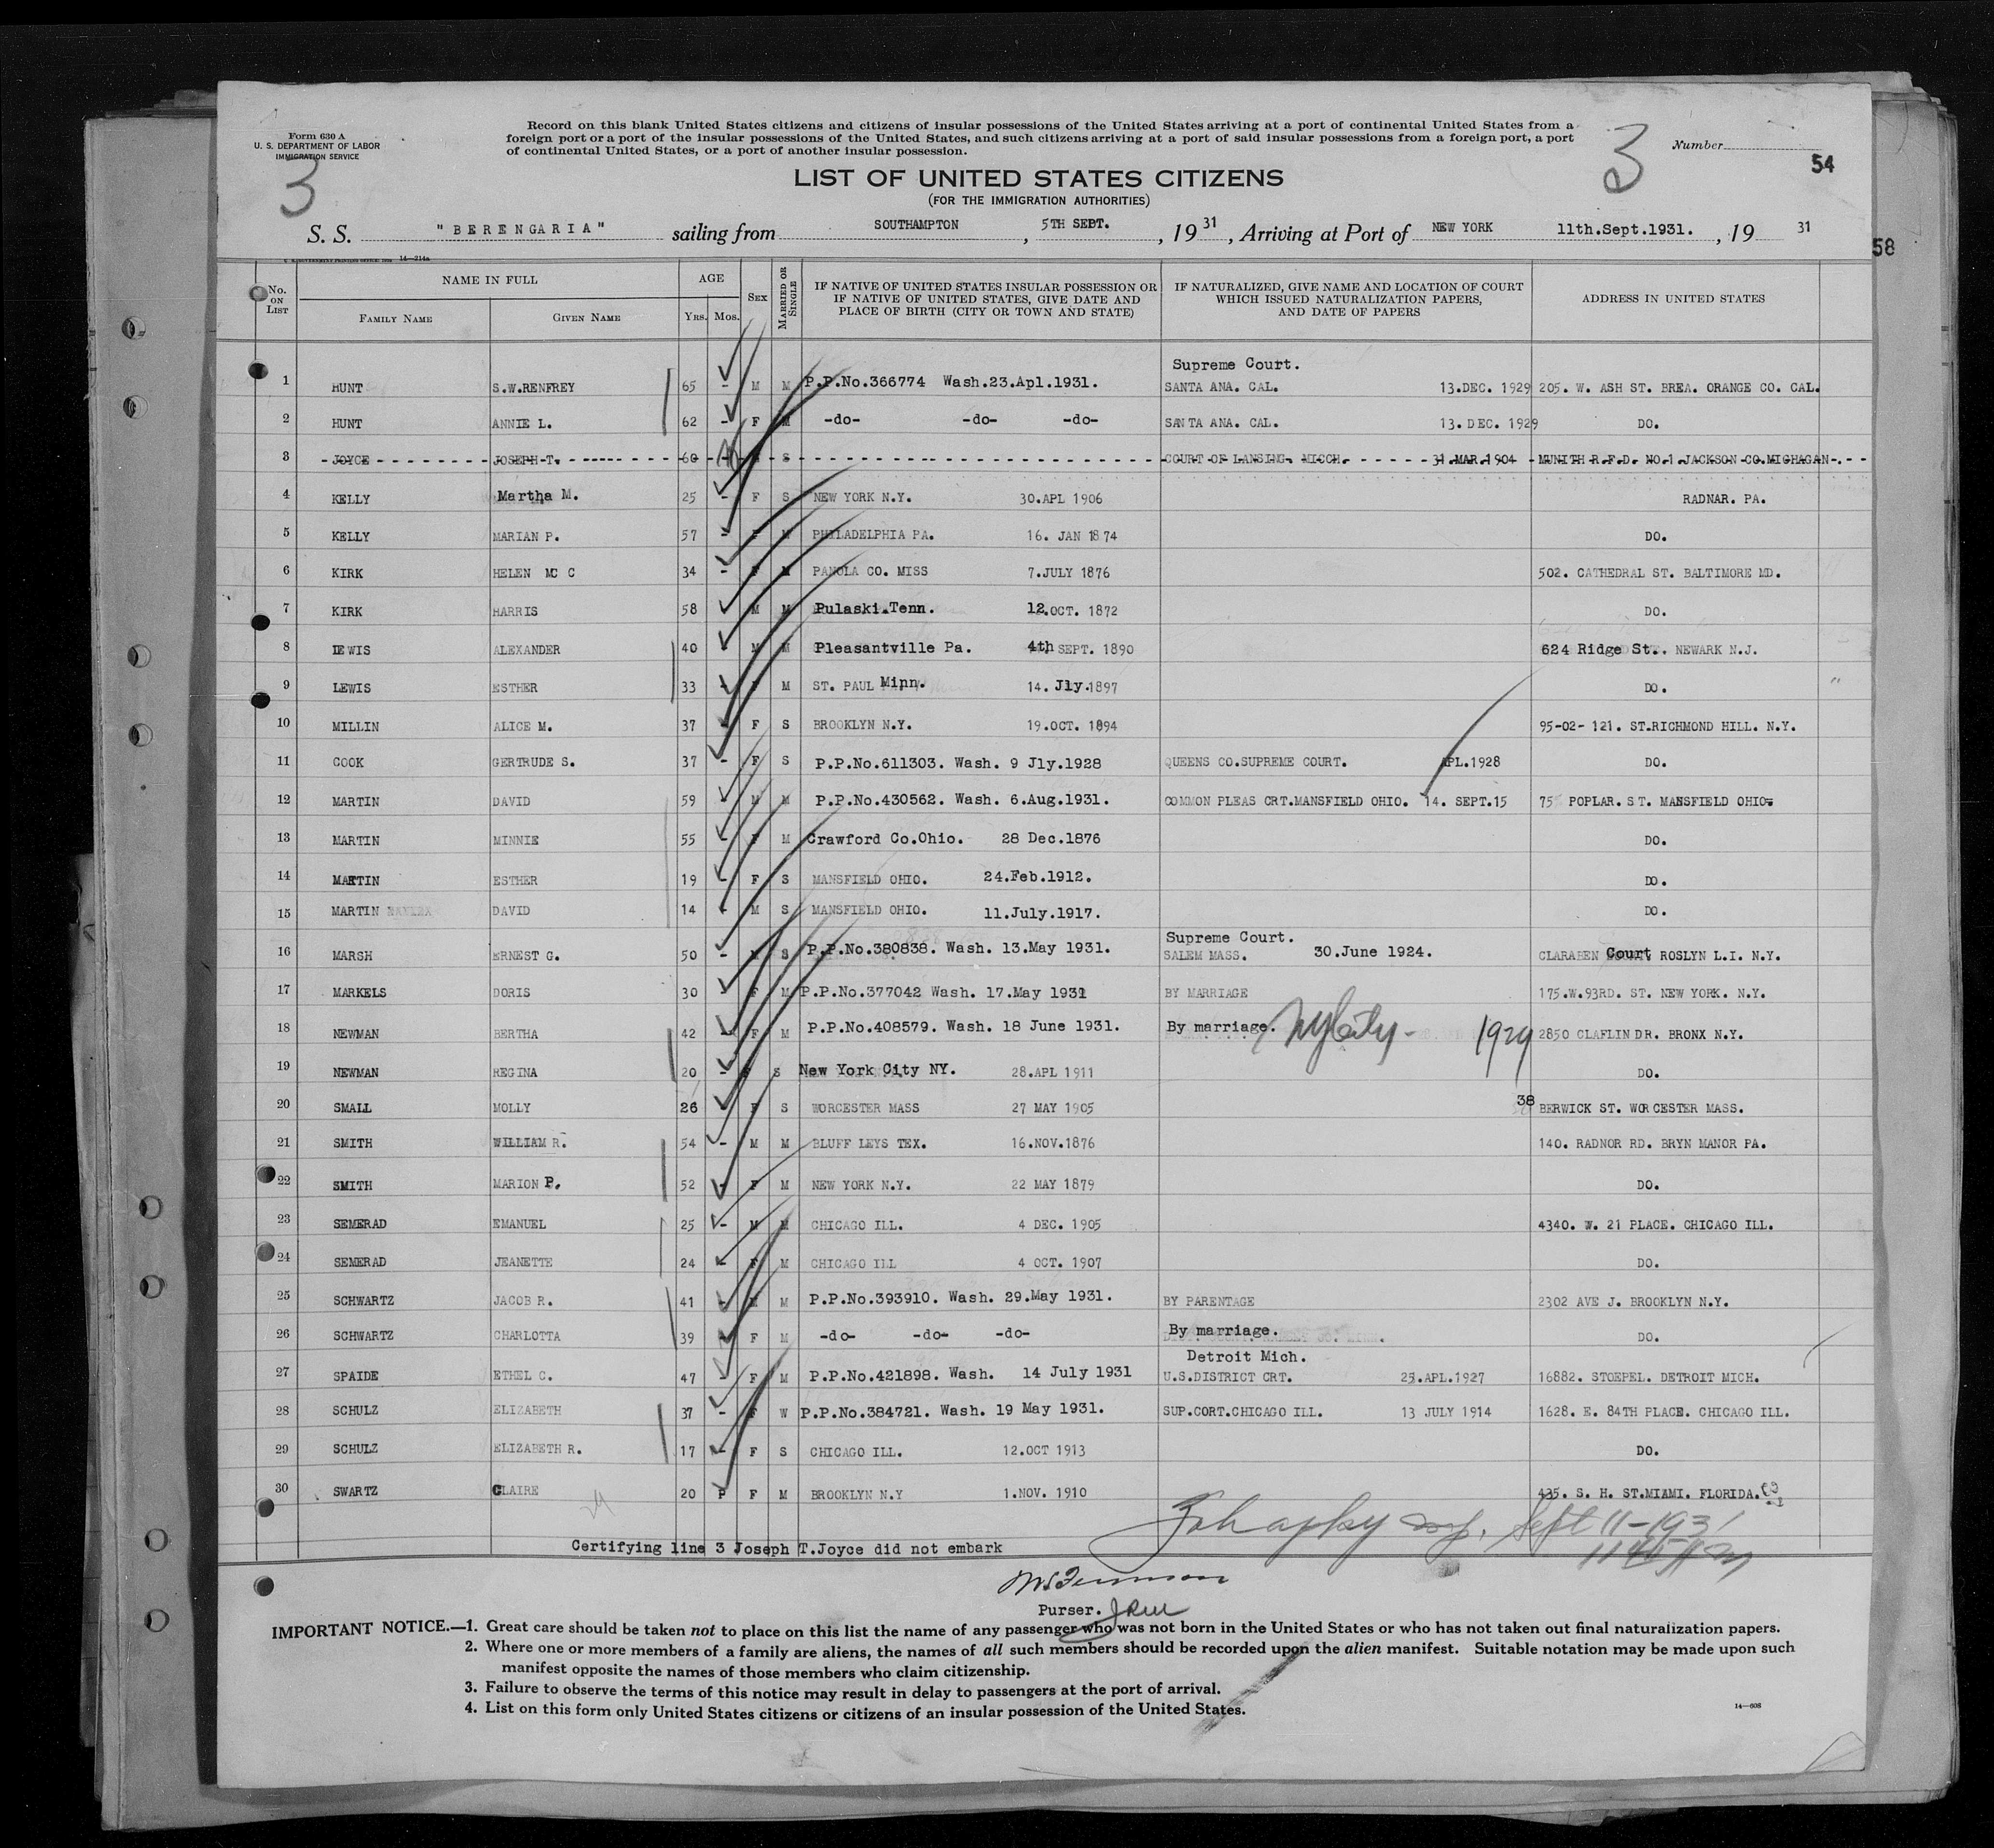 Form 630 A
U. S. DEPARTMENT OF LABOR
IMMIGRATION SERVICE
3
Record on this blank United States citizens and citizens of insular possessions of the United States arriving at a port of continental United States from a
foreign port or a port of the insular possessions of the United States, and such citizens arriving at a port of said insular possessions from a foreign port, a port
of continental United States, or a port of another insular possession.
3
Number
54
LIST OF UNITED STATES CITIZENS
(FOR THE IMMIGRATION AUTHORITIES)
S. S. "BERENGARIA" sailing from SOUTHAMPTON, 5TH SEPT., 1931, Arriving at Port of NEW YORK 11th.Sept.1931., 19 31
58
14—214a
No. ON LIST NAME IN FULL FAMILY NAME GIVEN NAME AGE YRS. MOS. SEX MARRIED OR SINGLE IF NATIVE OF UNITED STATES INSULAR POSSESSION OR IF NATIVE OF UNITED STATES, GIVE DATE AND PLACE OF BIRTH (CITY OR TOWN AND STATE) IF NATURALIZED, GIVE NAME AND LOCATION OF COURT WHICH ISSUED NATURALIZATION PAPERS, AND DATE OF PAPERS ADDRESS IN UNITED STATES
Supreme Court.
1 HUNT S.W.RENFREY 65 - M M P.P.No.366774 Wash.23.Apl.1931. SANTA ANA. CAL. 13.DEC. 1929 205. W. ASH ST. BREA. ORANGE CO. CAL.
2 HUNT ANNIE L. 62 - F M -do- -do- -do- SANTA ANA. CAL. 13.DEC. 1929 DO.
3 JOYCE JOSEPH T. 60 S COURT OF LANSING. MICCH. 31.MAR.1904 MUNITH R.F.D. NO.1 JACKSON CO.MICHAGAN.
4 KELLY Martha M. 25 - F S NEW YORK N.Y. 30.APL 1906 RADNAR. PA.
5 KELLY MARIAN P. 57 - F M PHILADELPHIA PA. 16. JAN 1874 DO.
6 KIRK HELEN MC C 34 - F M PANOLA CO. MISS 7.JULY 1876 502. CATHEDRAL ST. BALTIMORE MD.
7 KIRK HARRIS 58 M M Pulaski.Tenn. 12.OCT. 1872 DO.
8 LEWIS ALEXANDER 40 M M Pleasantville Pa. 4th SEPT. 1890 624 Ridge St.. NEWARK N.J.
9 LEWIS ESTHER 33 - F M ST. PAUL Minn. 14. Jly.1897 DO.
10 MILLIN ALICE M. 37 - F S BROOKLYN N.Y. 19.OCT. 1894 95-02- 121. ST.RICHMOND HILL. N.Y.
11 COOK GERTRUDE S. 37 - F S P.P.No.611303. Wash. 9 Jly.1928 QUEENS CO.SUPREME COURT. APL.1928 DO.
12 MARTIN DAVID 59 - M M P.P.No.430562. Wash. 6.Aug.1931. COMMON PLEAS CRT.MANSFIELD OHIO. 14. SEPT.15 75 POPLAR. ST. MANSFIELD OHIO.
13 MARTIN MINNIE 55 - F M Crawford Co.Ohio. 28 Dec.1876 DO.
14 MARTIN ESTHER 19 - F S MANSFIELD OHIO. 24.Feb.1912. DO.
15 MARTIN DAVID 14 - M S MANSFIELD OHIO. 11.July.1917. DO.
Supreme Court.
16 MARSH ERNEST G. 50 - M S P.P.No.380838. Wash. 13.May 1931. SALEM MASS. 30.June 1924. CLARABEN Court ROSLYN L.I. N.Y.
17 MARKELS DORIS 30 - F M P.P.No.377042 Wash. 17.May 1931 BY MARRIAGE 175.W.93RD. ST. NEW YORK. N.Y.
18 NEWMAN BERTHA 42 - F M P.P.No.408579. Wash. 18 June 1931. By marriage. ny City - 1929 2850 CLAFLIN DR. BRONX N.Y.
19 NEWMAN REGINA 20 - S New York City NY. 28.APL 1911 DO.
20 SMALL MOLLY 26 F S WORCESTER MASS 27 MAY 1905 38 BERWICK ST. WORCESTER MASS.
21 SMITH WILLIAM R. 54 - M M BLUFF LEYS TEX. 16.NOV.1876 140. RADNOR RD. BRYN MANOR PA.
22 SMITH MARION P. 52 - F M NEW YORK N.Y. 22 MAY 1879 DO.
23 SEMERAD EMANUEL 25 - M M CHICAGO ILL. 4 DEC. 1905 4340. W. 21 PLACE. CHICAGO ILL.
24 SEMERAD JEANETTE 24 - F M CHICAGO ILL 4 OCT. 1907 DO.
25 SCHWARTZ JACOB R. 41 - M M P.P.No.393910. Wash. 29.May 1931. BY PARENTAGE 2302 AVE J. BROOKLYN N.Y.
26 SCHWARTZ CHARLOTTA 39 - F M -do- -do- -do- By marriage. DO.
Detroit Mich.
27 SPAIDE ETHEL C. 47 - F M P.P.No.421898. Wash. 14 July 1931 U.S.DISTRICT CRT. 25.APL.1927 16882. STOEPEL. DETROIT MICH.
28 SCHULZ ELIZABETH 37 - F W P.P.No.384721. Wash. 19 May 1931. SUP.CORT.CHICAGO ILL. 13 JULY 1914 1628. E. 84TH PLACE. CHICAGO ILL.
29 SCHULZ ELIZABETH R. 17 - F S CHICAGO ILL. 12.OCT 1913 DO.
30 SWARTZ CLAIRE 20 F M BROOKLYN N.Y 1.NOV. 1910 435. S. H. ST.MIAMI. FLORIDA.
Sept 11-1931
Certifying line 3 Joseph T.Joyce did not embark
Purser.
IMPORTANT NOTICE.—1. Great care should be taken not to place on this list the name of any passenger who was not born in the United States or who has not taken out final naturalization papers.
2. Where one or more members of a family are aliens, the names of all such members should be recorded upon the alien manifest. Suitable notation may be made upon such
manifest opposite the names of those members who claim citizenship.
3. Failure to observe the terms of this notice may result in delay to passengers at the port of arrival.
4. List on this form only United States citizens or citizens of an insular possession of the United States.
14—608